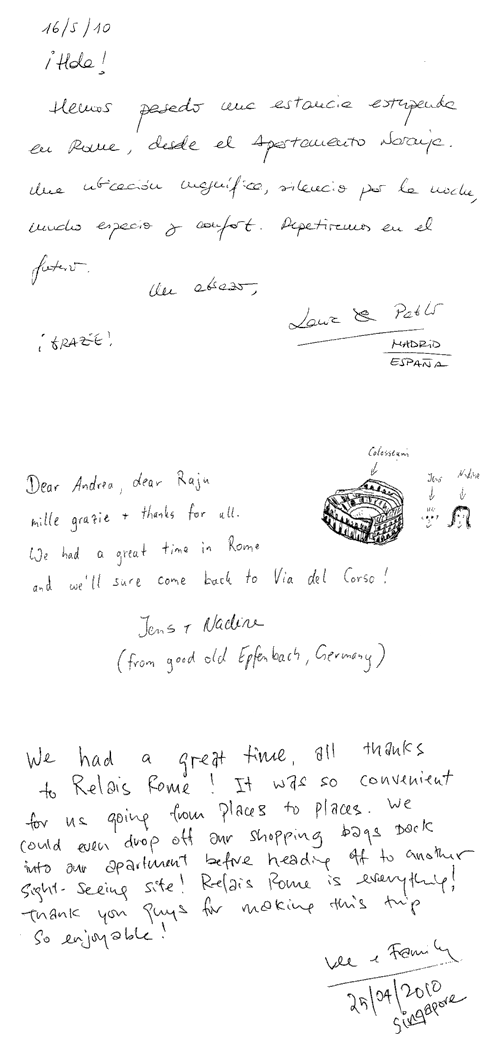 16/5/10
¡Hola!
Hemos pasado una estancia estupenda
en Roma, desde el Apartamento Naranja.
Una ubicación magnífica, silencio por la noche,
mucho espacio y confort. Repetiremos en el
futuro.
Un abrazo,
& Pablo
¡GRAZIE!
MADRID
ESPAÑA
Colosseum
Jens Nadine
Dear Andrea, dear Raju
mille grazie + thanks for all.
We had a great time in Rome
and we'll sure come back to Via del Corso!
Jens + Nadine
(from good old Epfenbach, Germany)
We had a great time, all thanks
to Relais Rome! It was so convenient
for us going from places to places. We
could even drop off our shopping bags back
into our apartment before heading off to another
sight-seeing site! Relais Rome is everything!
Thank you guys for making this trip
so enjoyable!
Lee & Family
25/04/2010
Singapore